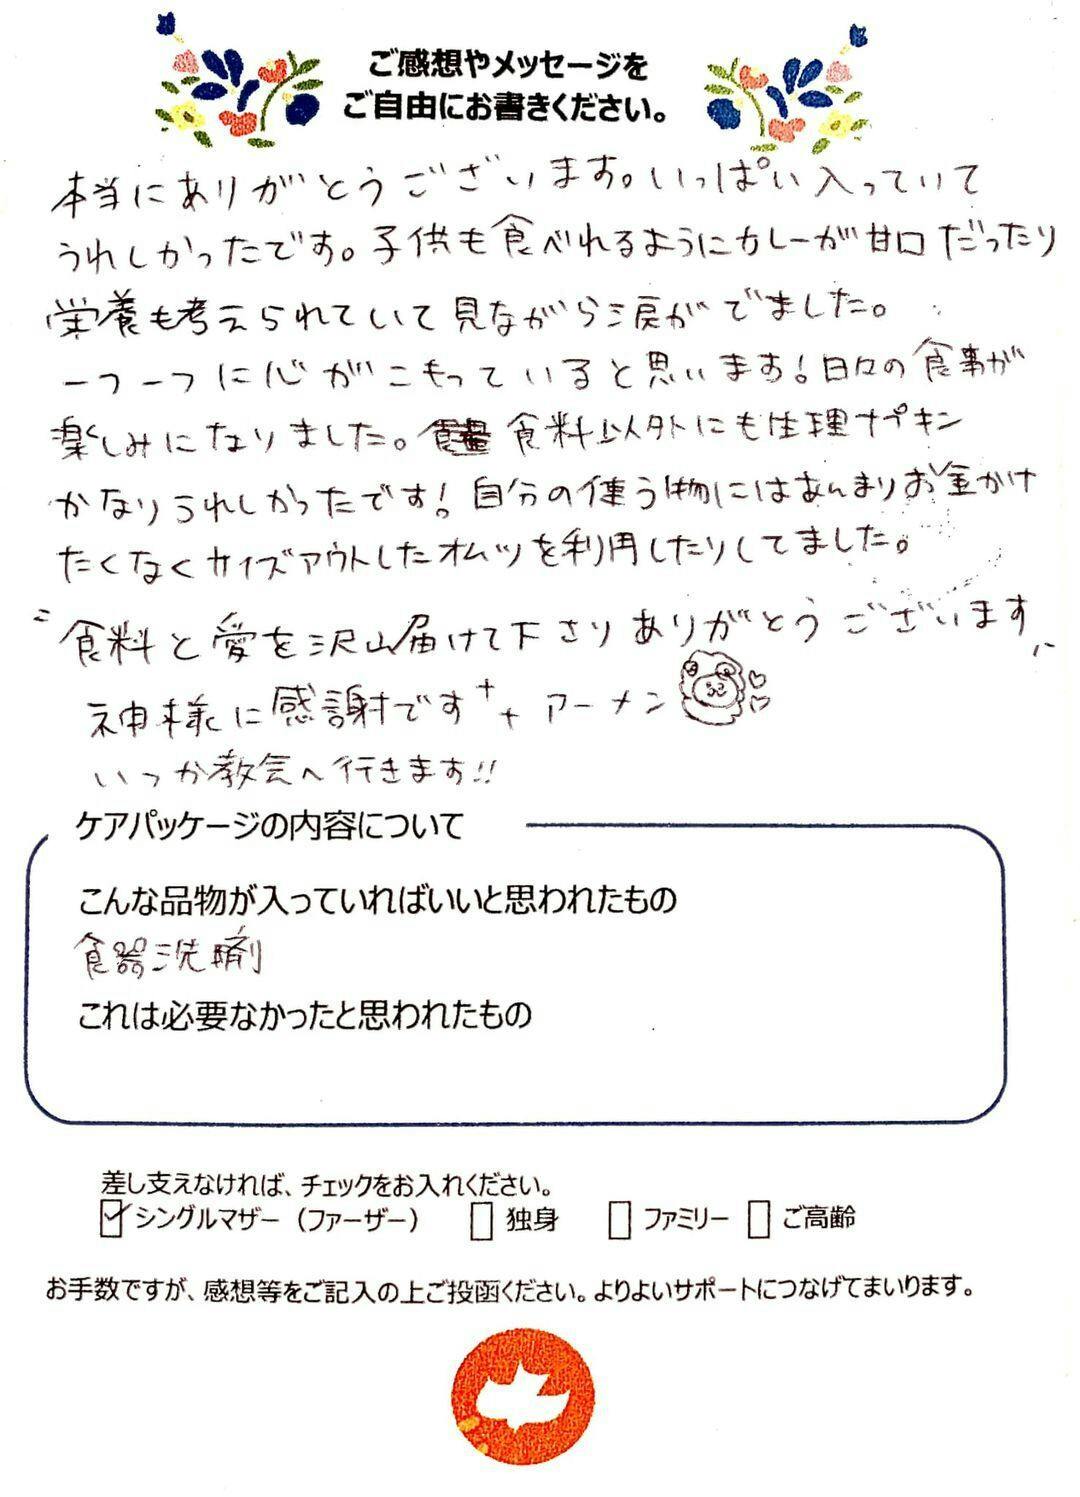 ご感想やメッセージを
ご自由にお書きください。
本当にありがとうございます。いっぱい入っていて
うれしかったです。子供も食べれるようにカレーが甘口だったり
栄養も考えられていて見ながら涙がでました。
一つ一つに心がこもっていると思います!日々の食事が
楽しみになりました。食料以外にも生理ナプキン
かなりうれしかったです!自分の使う物にはあんまりお金かけ
たくなくサイズアウトしたオムツを利用したりしてました。
〝食料と愛を沢山届けて下さりありがとうございます〟
神様に感謝です++アーメン
いつか教会へ行きます!!
ケアパッケージの内容について
こんな品物が入っていればいいと思われたもの
食器洗剤
これは必要なかったと思われたもの
差し支えなければ、チェックをお入れください。
☑シングルマザー(ファーザー) □ 独身 □ ファミリー □ ご高齢
お手数ですが、感想等をご記入の上ご投函ください。よりよいサポートにつなげてまいります。